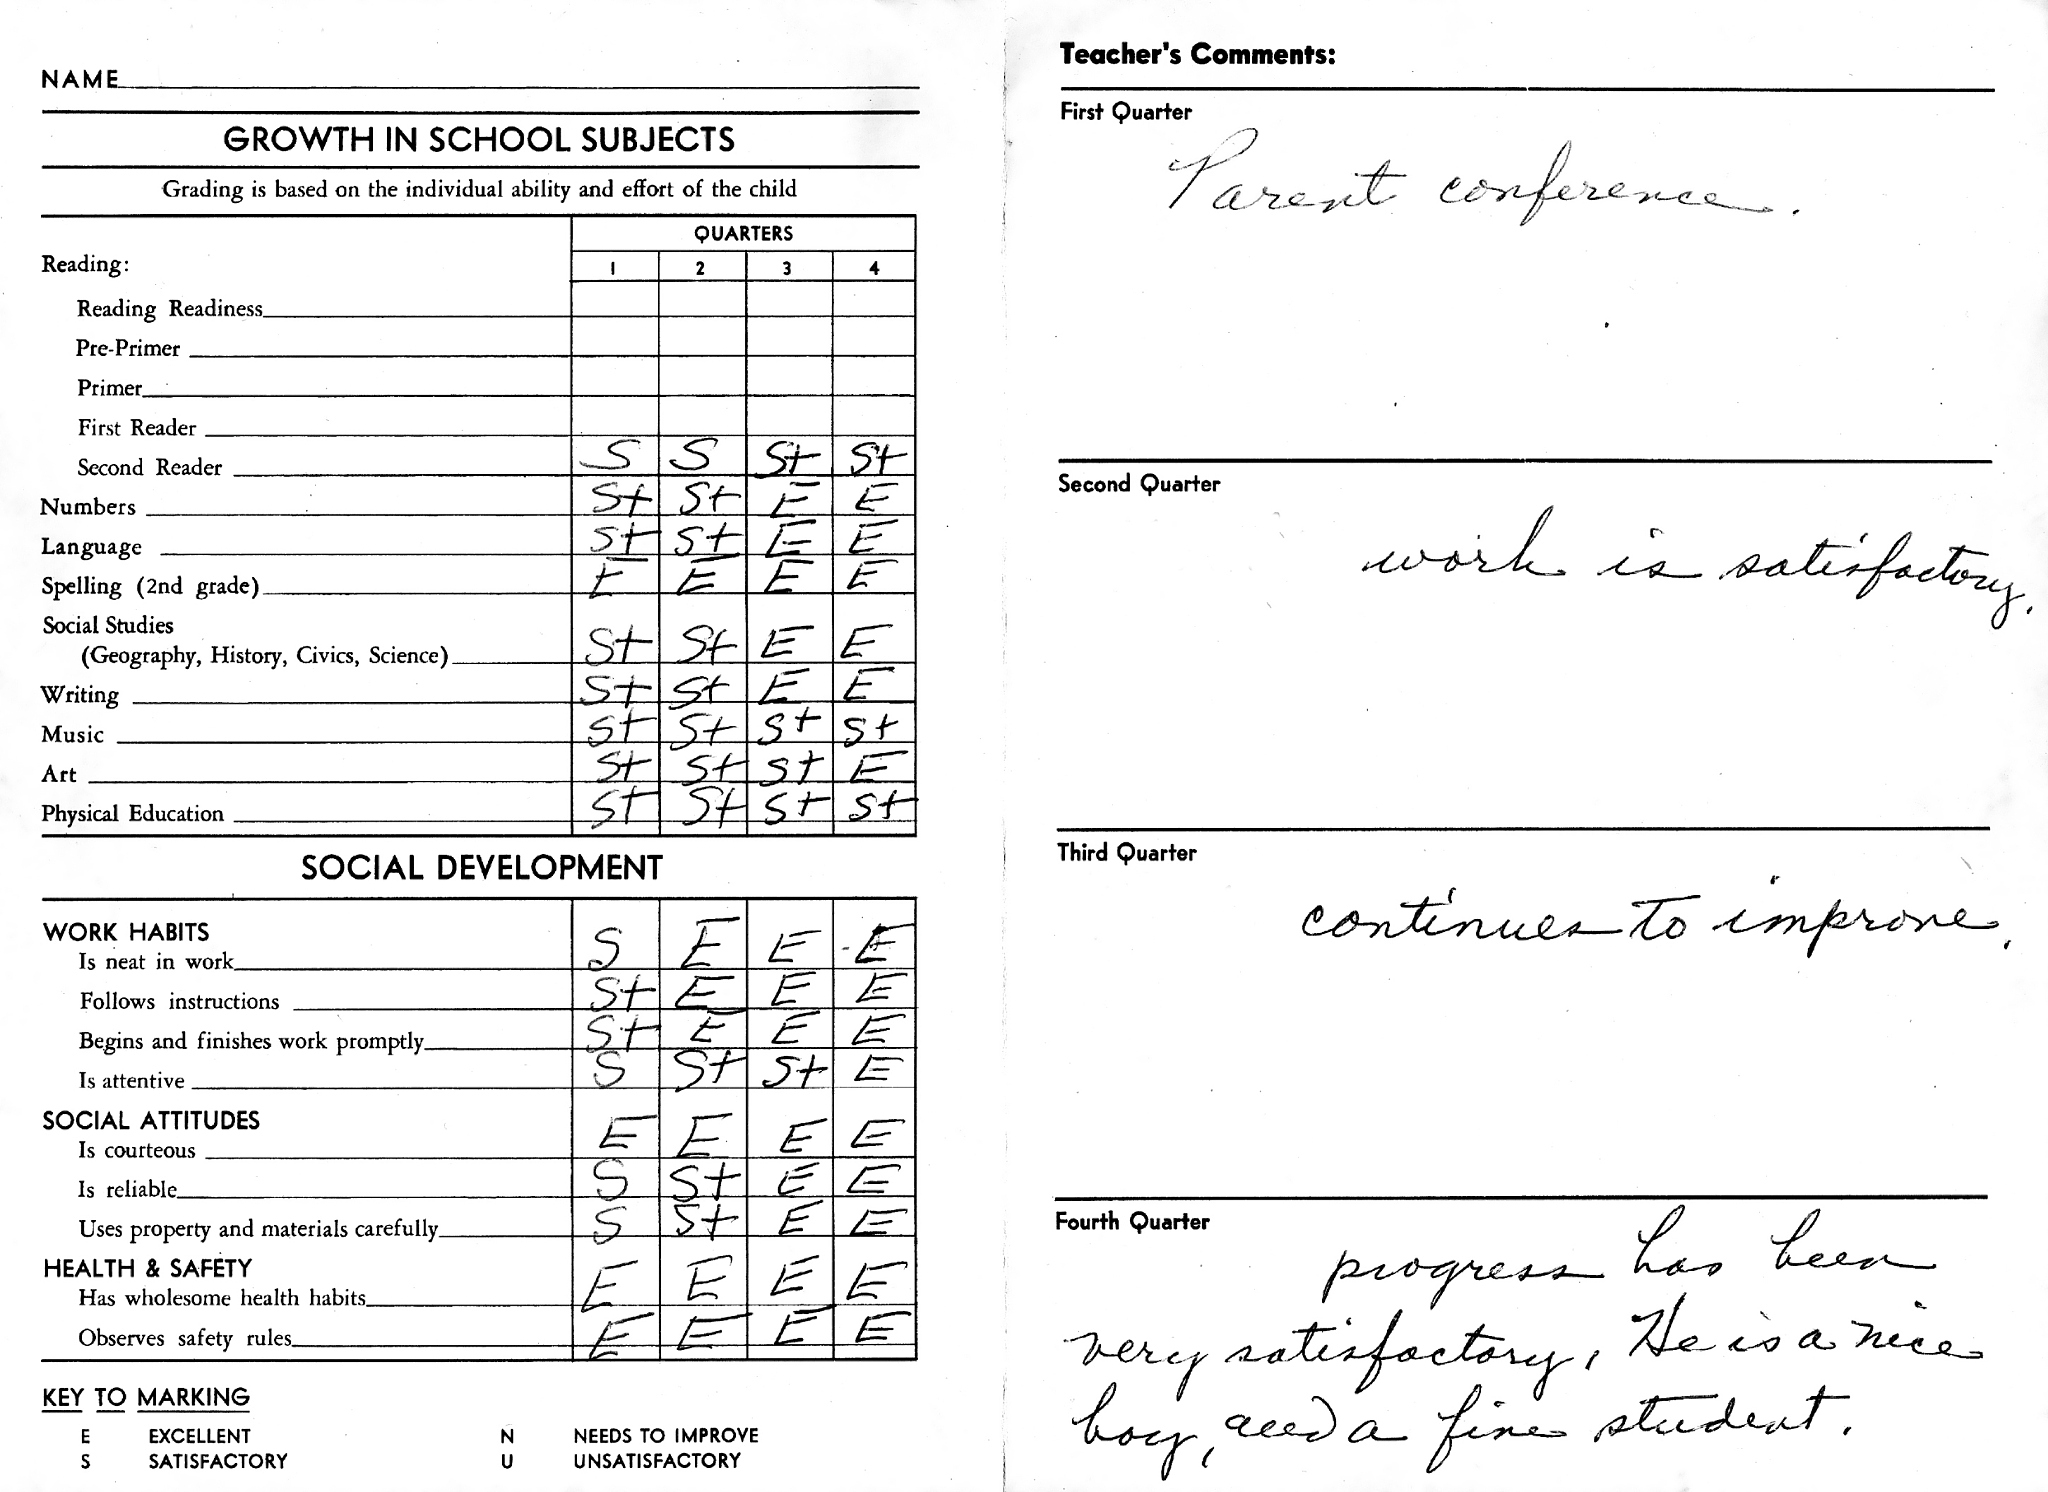 NAME
GROWTH IN SCHOOL SUBJECTS
Grading is based on the individual ability and effort of the child
QUARTERS
Reading: 1 2 3 4
Reading Readiness
Pre-Primer
Primer
First Reader
Second Reader S S S+ S+
Numbers S+ S+ E E
Language S+ S+ E E
Spelling (2nd grade) E E E E
Social Studies
(Geography, History, Civics, Science) S+ S+ E E
Writing S+ S+ E E
Music S+ S+ S+ S+
Art S+ S+ S+ E
Physical Education S+ S+ S+ S+
SOCIAL DEVELOPMENT
WORK HABITS
Is neat in work S E E E
Follows instructions S+ E E E
Begins and finishes work promptly S+ E E E
Is attentive S S+ S+ E
SOCIAL ATTITUDES
Is courteous E E E E
Is reliable S S+ E E
Uses property and materials carefully S S+ E E
HEALTH & SAFETY
Has wholesome health habits E E E E
Observes safety rules E E E E
KEY TO MARKING
E EXCELLENT N NEEDS TO IMPROVE
S SATISFACTORY U UNSATISFACTORY
Teacher's Comments:
First Quarter
Parent conference.
Second Quarter
work is satisfactory.
Third Quarter
continues to improve.
Fourth Quarter
progress has been
very satisfactory. He is a nice
boy, and a fine student.